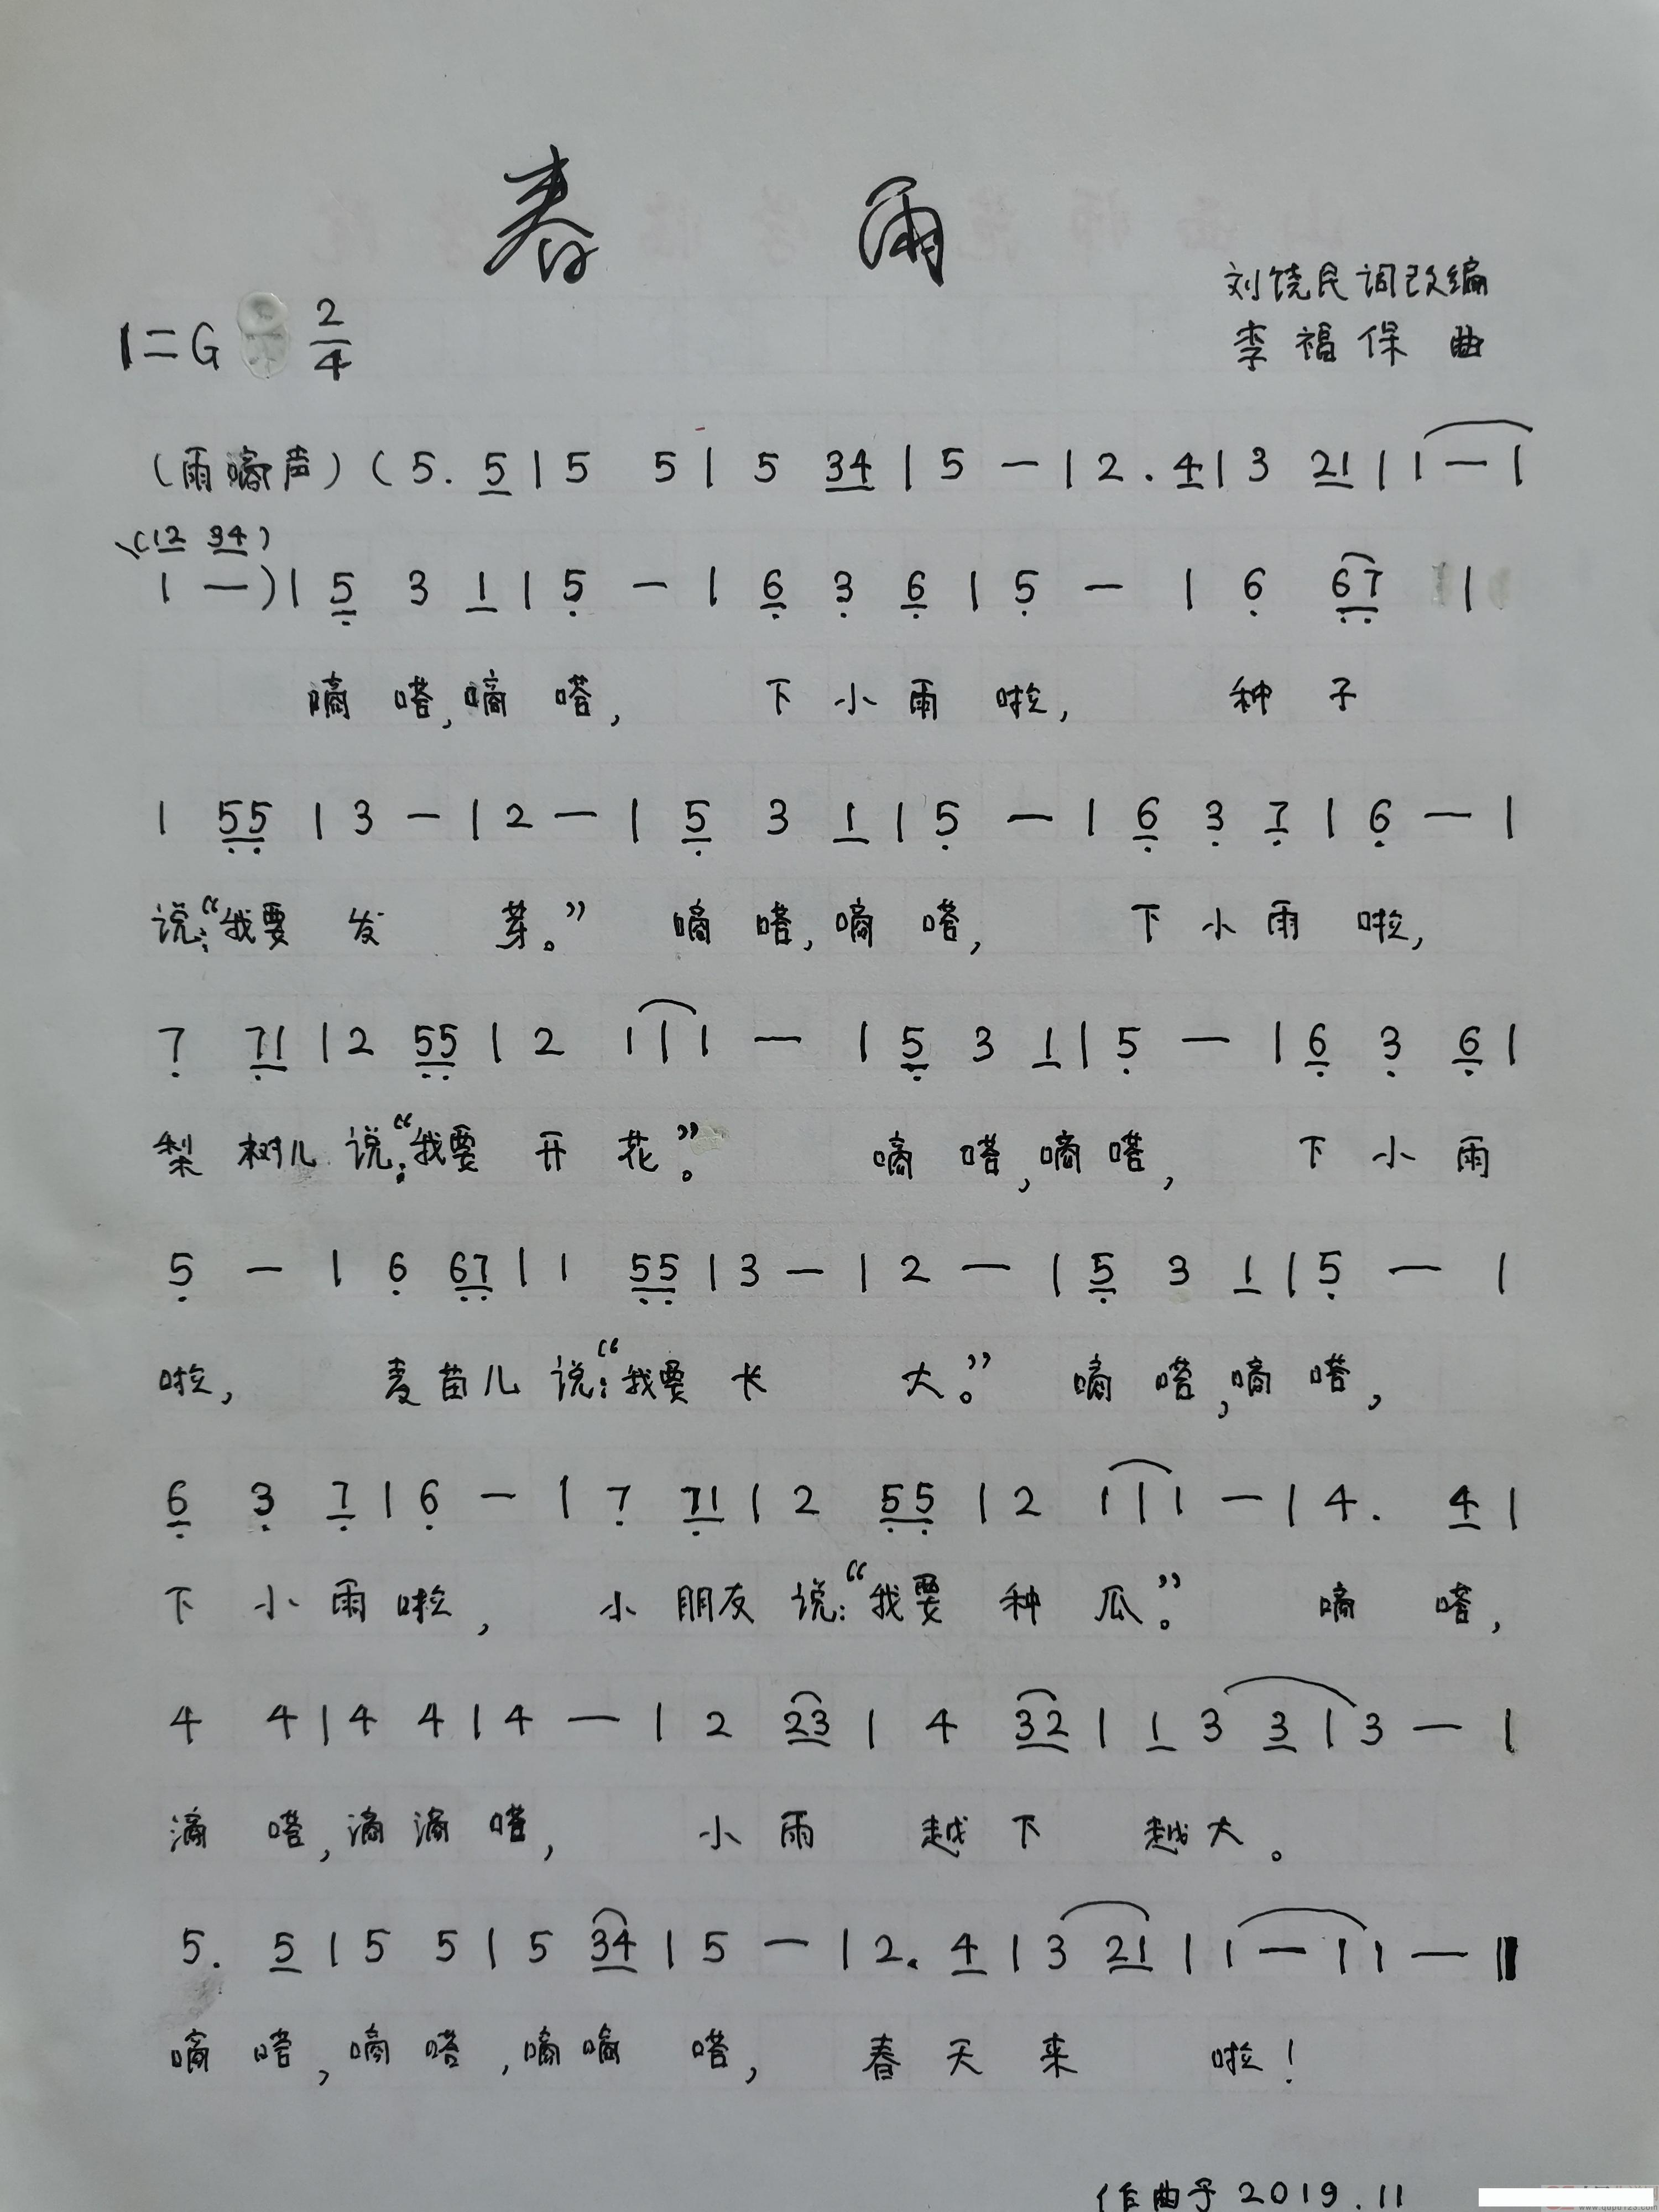 春 雨
刘饶民词改编
1=G 2/4
李福保 曲
(雨嘀声)(5. 5|5 5|5 34|5 —|2. 4|3 21|1 —|
(12 34)
1 —)|5 3 1|5 —|6 3 6|5 — |6 67 |
嘀 嗒,嘀 嗒, 下 小 雨 啦, 种 子
1 55|3 —|2 —|5 3 1|5 —|6 3 7|6 —|
说:“我要 发 芽。” 嘀 嗒,嘀 嗒, 下 小 雨 啦,
7 71|2 55|2 1|1 — |5 3 1|5 —|6 3 6|
梨 树儿 说:“我要 开 花”。 嘀 嗒,嘀 嗒, 下 小 雨
5 —|6 67|1 55|3 —|2 —|5 3 1|5 — |
啦, 麦 苗 儿 说:“我要 长 大。” 嘀 嗒,嘀 嗒,
6 3 7|6 —|7 71|2 55|2 1|1 —|4. 4|
下 小 雨 啦, 小 朋友 说:“我要 种 瓜。” 嘀 嗒,
4 4|4 4|4 —|2 23|4 32|1 3 3|3 —|
滴 嗒,滴 滴 嗒, 小 雨 越 下 越 大。
5. 5|5 5|5 34|5 —|2. 4|3 21|1 —|1 —‖
嘀 嗒,嘀 嗒,嘀 嘀 嗒, 春 天 来 啦!
作曲于2019.11
www.qupu123.com